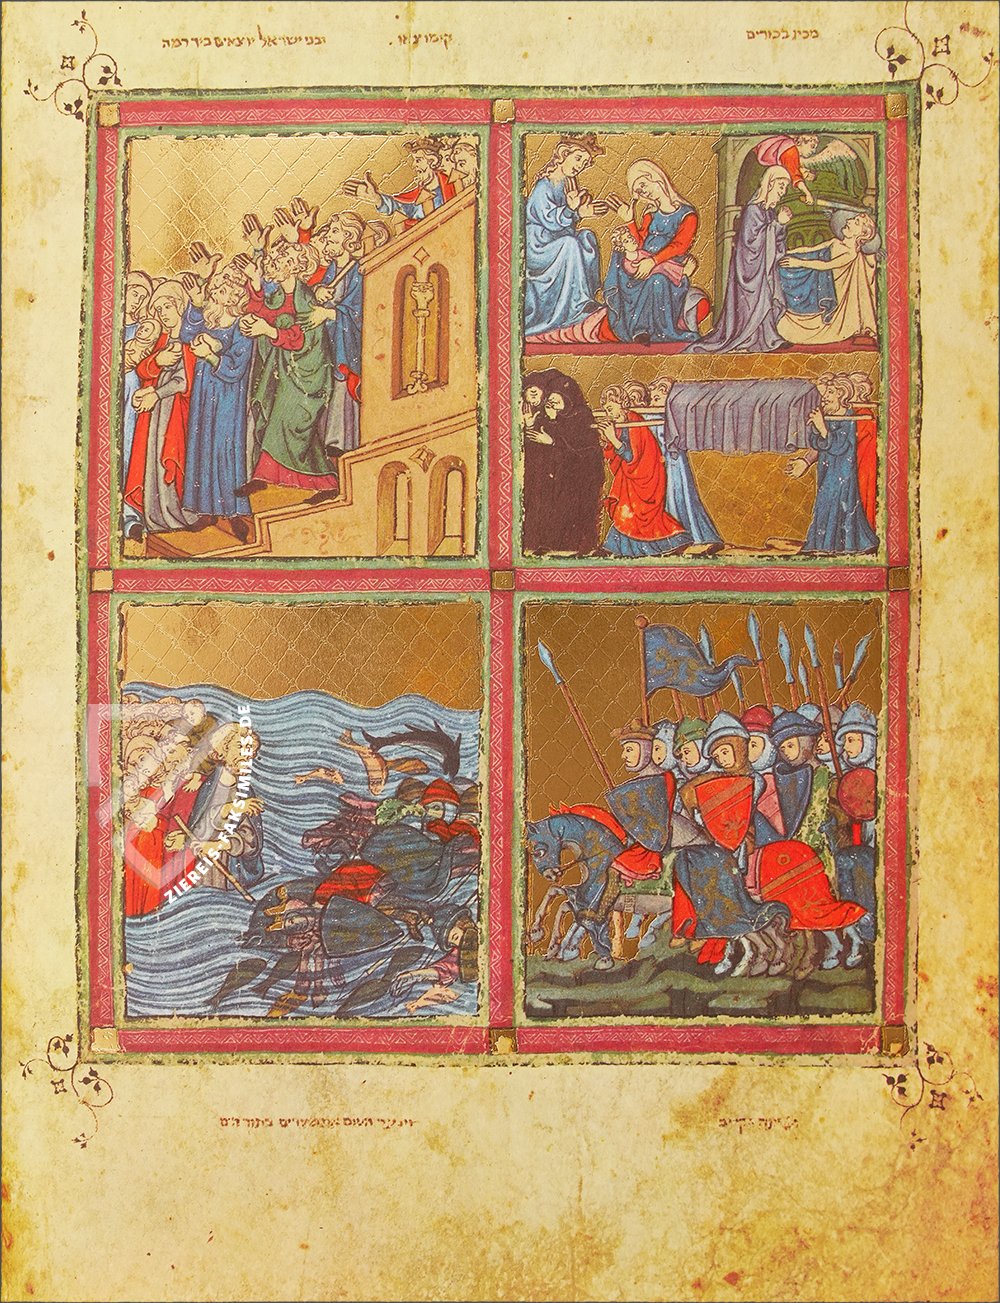 מכת בכורים
קומו צאו
ובני ישראל יוצאים ביד רמה
ופרעה הקריב
וינער השם את מצרים בתוך הים
ZIEREIS-FAKSIMILES.DE